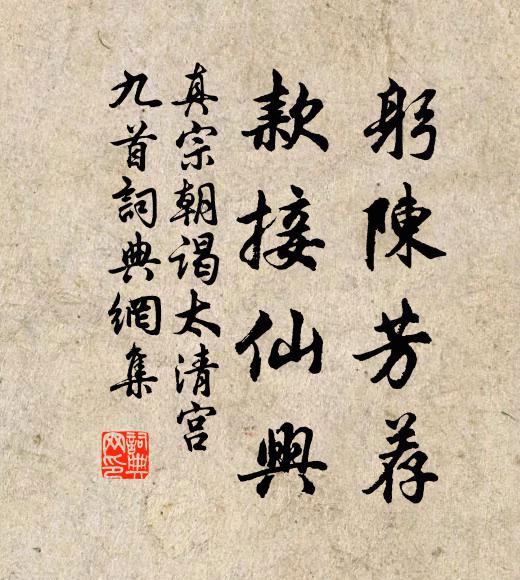 躬陳芳荐
款接仙興
真宗朝谒太清宫
九首詞典網集
詞典
网印